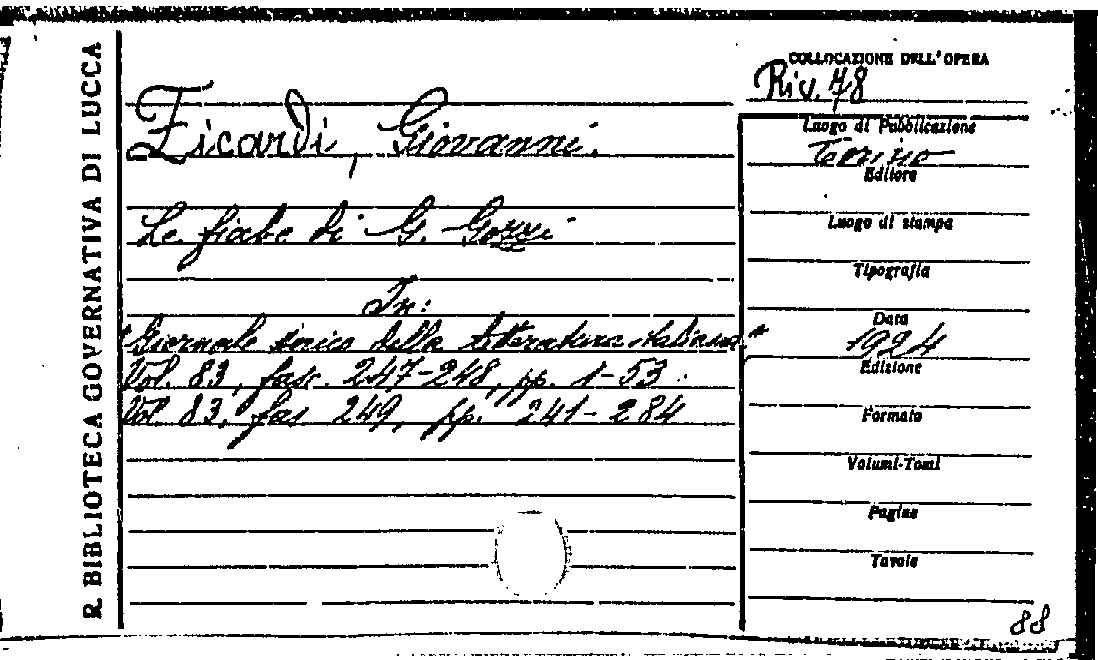 R. BIBLIOTECA GOVERNATIVA DI LUCCA
Zicardi, Giovanni.
Le fiabe di G. Gozzi
In:
"Giornale storico della letteratura italiana"
Vol. 83, fasc. 247-248, pp. 1-53.
Vol. 83, fas. 249, pp. 241-284
COLLOCAZIONE DELL'OPERA
Riv. 78
Luogo di Pubblicazione
Torino
Editore
Luogo di stampa
Tipografia
Data
1924
Edizione
Formato
Volumi-Tomi
Pagine
Tavole
88